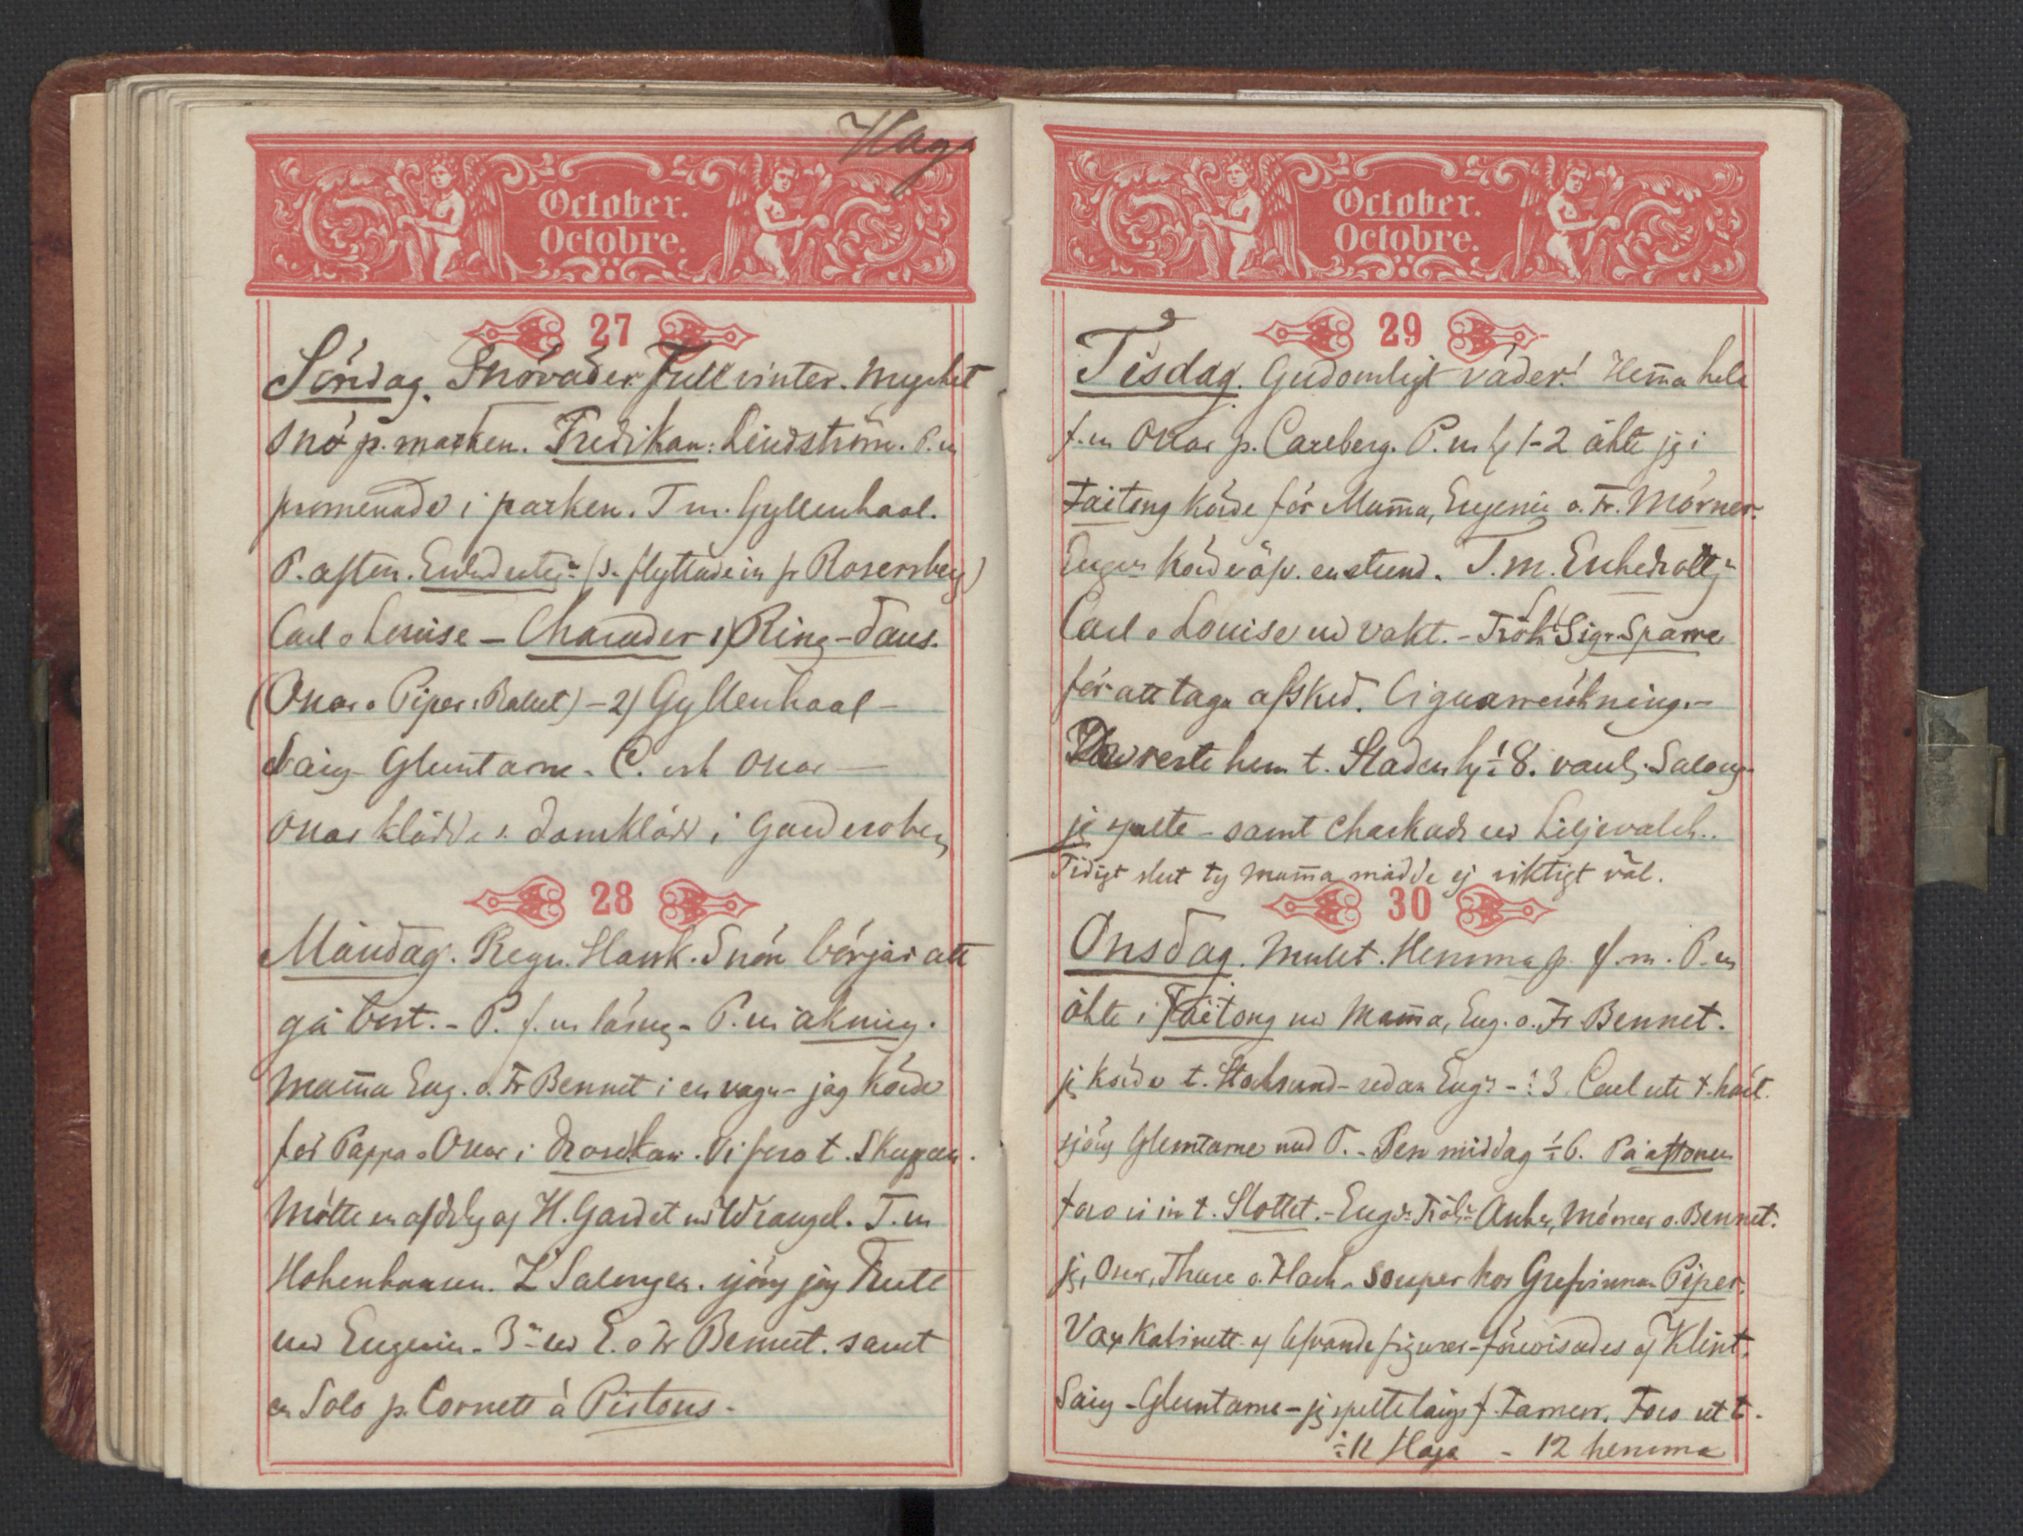 Haga
October.
Octobre.
27
Söndag. Snöväder Full vinter. Mycket
snö p. marken. Predikan: Lindström. P.m
promenade i parken. T m. Gyllenhaal.
P. aften. Enkedrotg:n (s. flyttade in fr Rosersberg)
Carl o Louise – Charader 1) Ring-dans.
(Oscar o Piper: Ballet) – 2) Gyllenhaal –
Säng Gluntarne – C. och Oscar –
Oscar klädde s. damkläd i Garderoben
28
Måndag. Regn. Slask. Snön börjar att
gå bort. – P. f.m läsn – P.m åkning.
Mamma Eug. o. Fr Bennet i en vagn – jag körde
för Pappa o Oscar i Droskan. Vi foro t. Skuggan.
Mötte en afdelg af H. Gardet m Wrangel. T. m
Hohenhausen. I Salongen. sjöng jag
med Eugenie – 3:n m E. o Fr Bennet. samt
en Solo p. Cornett à Pistons –
October.
Octobre.
29
Tisdag. Gudomligt väder! Hemma hela
f.m Oscar p. Carlberg. P.m kl 1–2 åkte jg i
Faitong körde för Mamma, Eugenie o. Fr. Mörner.
Eugen körde äfv. en stund. T. m. Enkedrottg:n
Carl o Louise m vakt. – Frök. Sigr. Sparre
för att taga afsked. Cigarrrökning. –
reste hem t. Staden kl ½ 8. vanl. Salong
jg spelte – samt charkade m Liljevalch..
Tidigt slut ty Mamma mådde ej riktigt väl.
30
Onsdag. Mulet. Hemma p. f.m. P.m
åkte i Faitong m Mamma, Eug. o. Fr Bennet.
jg körde t. Stocksund – sedan Eug:n – ½ 3. Carl ute t. häst.
sjöng Gluntarne med O. – Pen middag ½ 6. På aftonen
foro vi in t. Slottet. – Eug:n Frök:n Anker, Mörner o. Bennet.
jg, Oscar, Thure o. – souper hos Grefvinnan Piper.
Vax Kabinett af lefvande figurer – förevisades af Klint.
Säng – Gluntarne – jg spelte länge f. Damerr. Foro ut t.
½ 11 Haga – 12 hemma